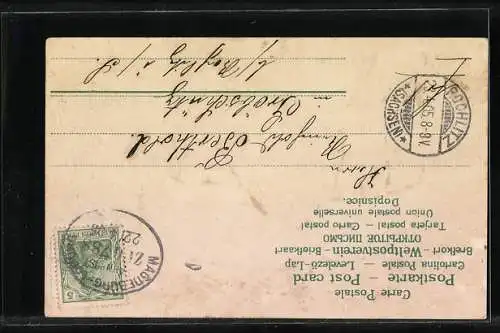 Carte Postale
Postkarte — Post card
Cartolina Postale — Levelező-Lap
Brefkort — Weltpostverein — Briefkaart
ОТКРЫТОЕ ПИСЬМО
Tarjeta postal — Carto postal
Union postale universelle
Dopisnice.
Herrn
Berthold.
in
b/ Rochlitz i/S.
ROCHLITZ
5. 8-9V.
*(SACHSEN)*
MAGDEBURG
5